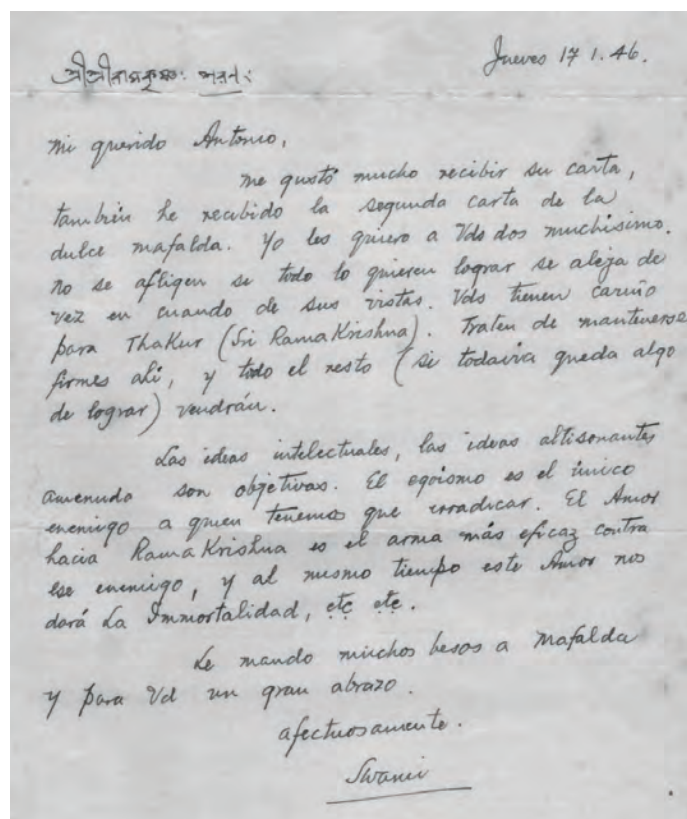 Jueves 17 1. 46.
শ্রীশ্রীরামকৃষ্ণঃ শরণঃ
Mi querido Antonio,
me gustó mucho recibir su carta,
también he recibido la segunda carta de la
dulce Mafalda. Yo los quiero a Vds dos muchísimo.
No se afligen si todo lo quieren lograr se aleja de
vez en cuando de sus vistas. Vds tienen cariño
para Thakur (Sri RamaKrishna). Traten de mantenerse
firmes ahí, y todo el resto (si todavía queda algo
de lograr) vendrán.
Las ideas intelectuales, las ideas altisonantes
amenudo son objetivas. El egoísmo es el único
enemigo a quien tenemos que erradicar. El Amor
hacia RamaKrishna es el arma más eficaz contra
ese enemigo, y al mismo tiempo este Amor nos
dará La Immortalidad, etc etc.
Le mando muchos besos a Mafalda
y para Vd un gran abrazo.
afectuosamente.
Swami